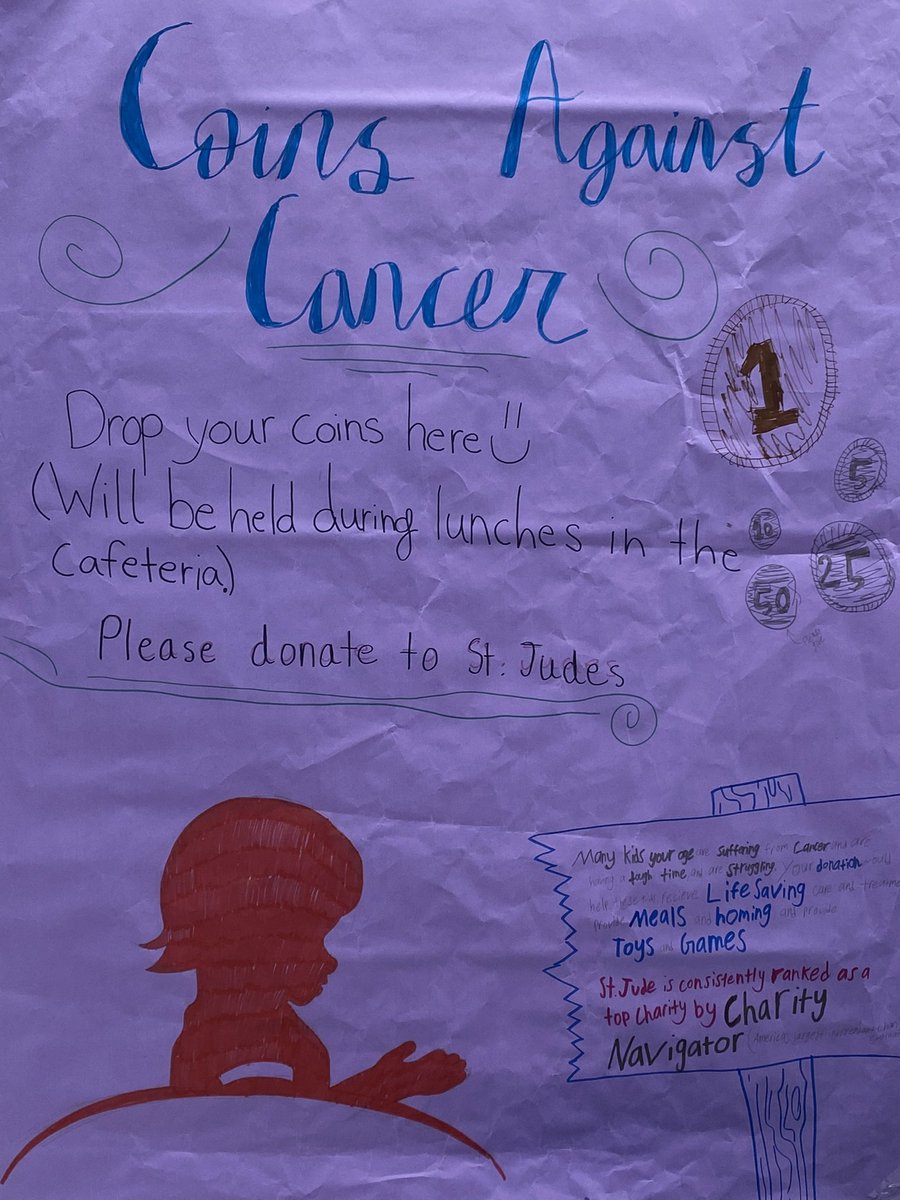 Coins Against
Cancer
Drop your coins here
(Will be held during lunches in the
Cafeteria.)
Please donate to St. Judes
1
5
10
25
50
Many kids your age are suffering from Cancer and are
having a tough time and are struggling. Your donation would
help these kids recieve Life Saving care and treatment
provide Meals and homing and provide
Toys and Games
St. Jude is consistently ranked as a
top charity by Charity
Navigator